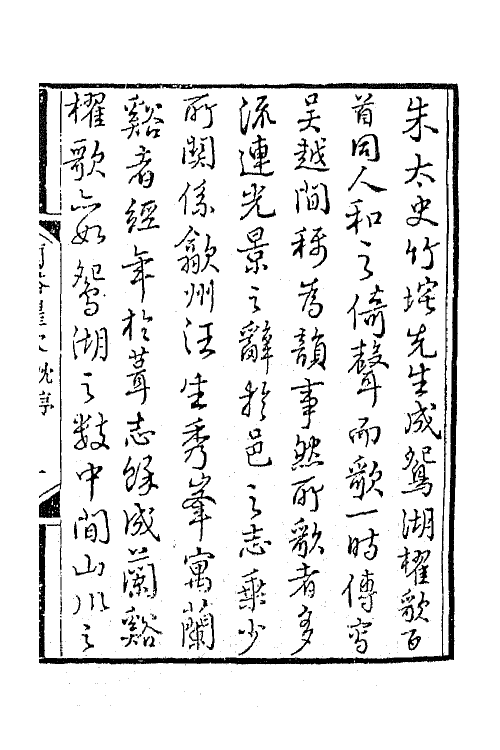 朱太史竹垞先生成鴛湖櫂歌百
首同人和之倚聲而歌一時傳寫
吳越間稱為韻事然所歌者多
流連光景之辭於邑之志乘少
所關係歙州汪生秀峯寓蘭
谿者經年於葺志餘成蘭谿
櫂歌亦如鴛湖之數中間山川之